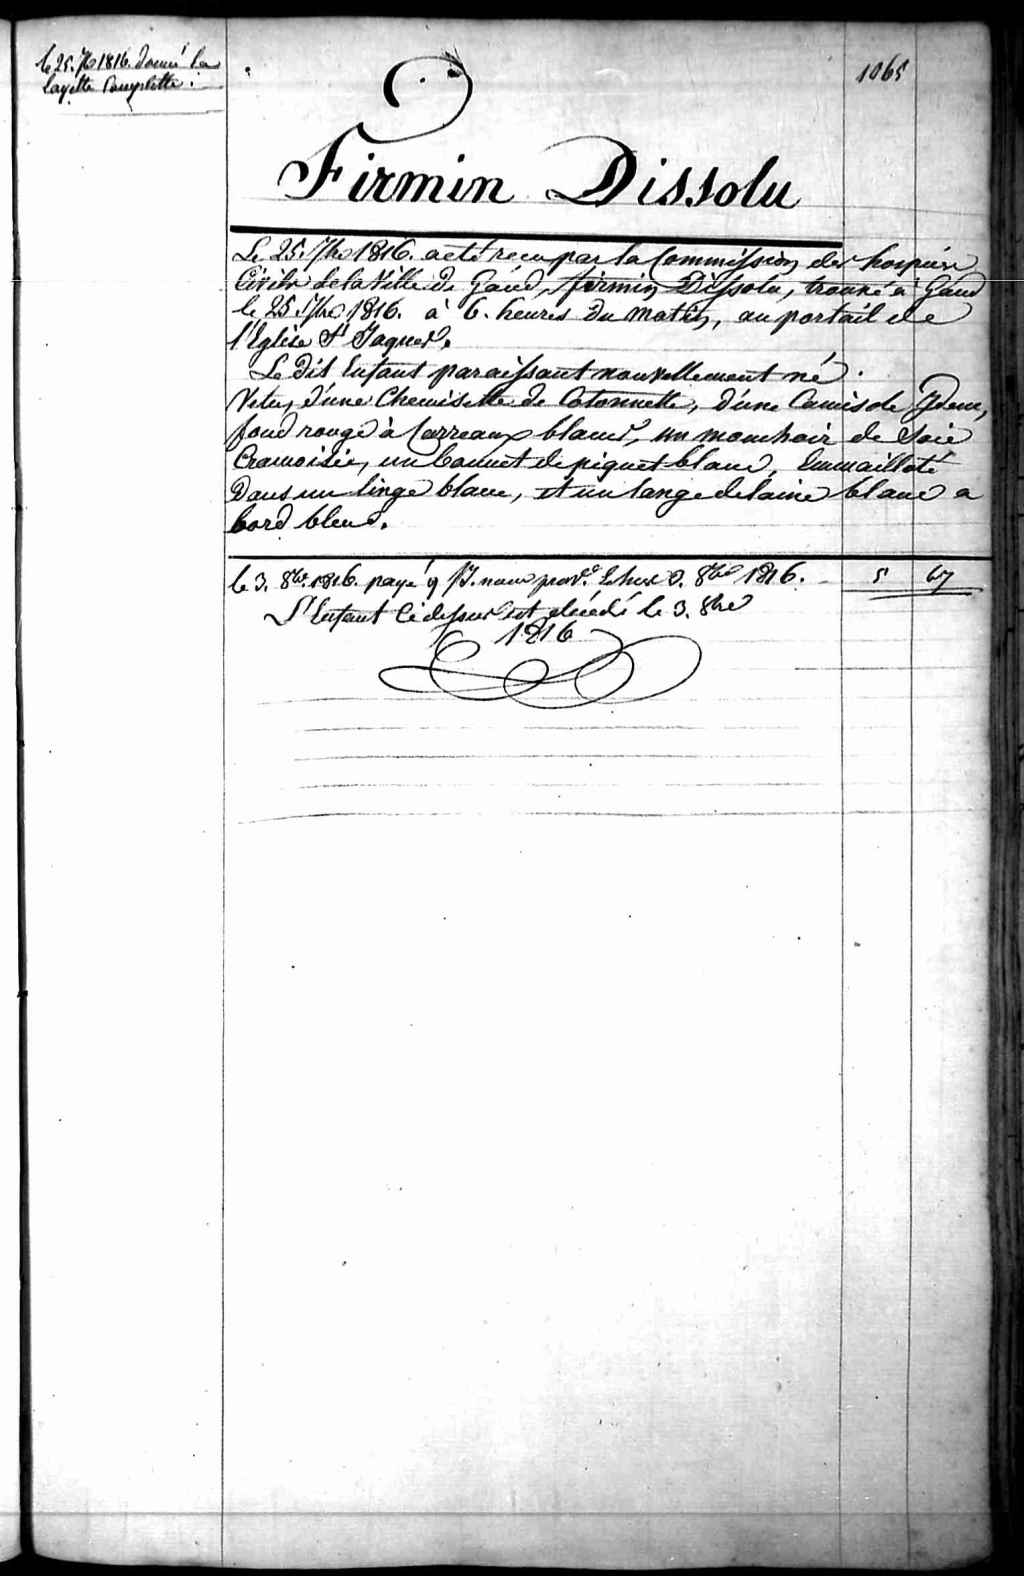 le 25. 7b 1816. donné la
layette Complette.
1065
Firmin Dissolu
Le 25. 7bre 1816. a eté recu par la Commission des hospices
Civils de la Ville de Gand, firmin Dissolu, trouvé à Gand
le 25. 7bre 1816. à 6. heures du matin, au portail de
l'Eglise St Jaques.
Le dit Enfant paraissant nouvellement né.
Vetu, d'une Chemisette de Cotonnette, d'une Camisole Idem,
fond rouge à Carreaux blancs, un mouchoir de Soie
Cramoisie, un bonnet de piquet blanc, Emmailloté
Dans un linge blanc, et un lange de laine blanc a
bord bleus.
le 3. 8bre 1816. payé 9 J. 3. 8bre 1816. 5 67
L'Enfant Cidessus est décédé le 3. 8bre
1816